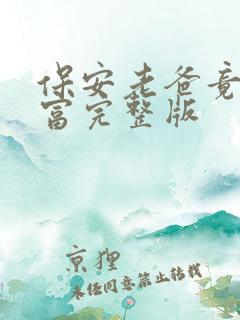 保安老爸竟
富完整版
京狸
未经同意禁止转载